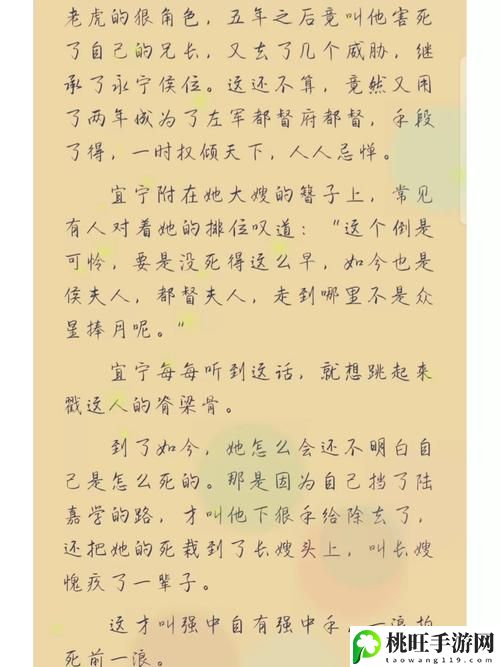 老虎的狠角色，五年之后竟叫他害死
了自己的兄长，又去了几个威胁，继
承了永宁侯位。这还不算，竟然又用
了两年成为了左军都督府都督，手段
了得，一时权倾天下，人人忌惮。
宜宁附在她大嫂的簪子上，常见
有人对着她的排位叹道：“这个倒是
可怜，要是没死得这么早，如今也是
侯夫人，都督夫人，走到哪里不是众
星捧月呢。”
宜宁每每听到这话，就想跳起来
戳这人的脊梁骨。
到了如今，她怎么会还不明白自
己是怎么死的。那是因为自己挡了陆
嘉学的路，才叫他下狠手给除去了，
还把她的死栽到了长嫂头上，叫长嫂
愧疚了一辈子。
这才叫强中自有强中手，一浪拍
死前一浪。
桃旺手游网
taowang119.com